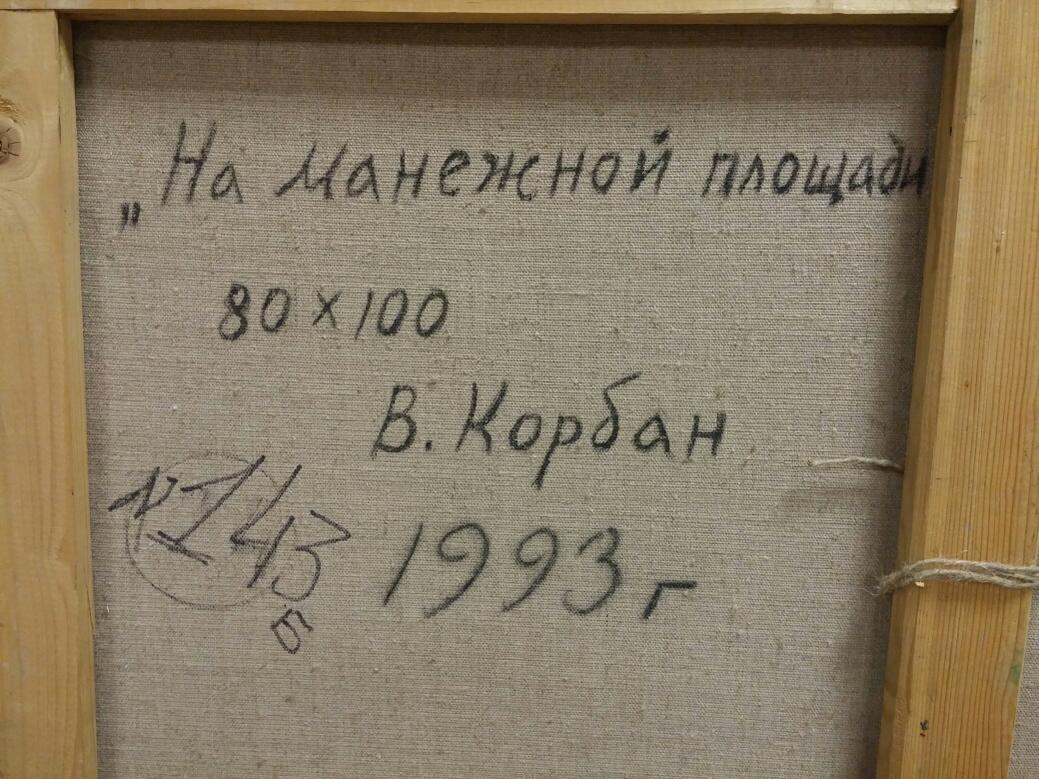 „На Манежной площади
80 х 100
В. Корбан
№143
Б
1993 г